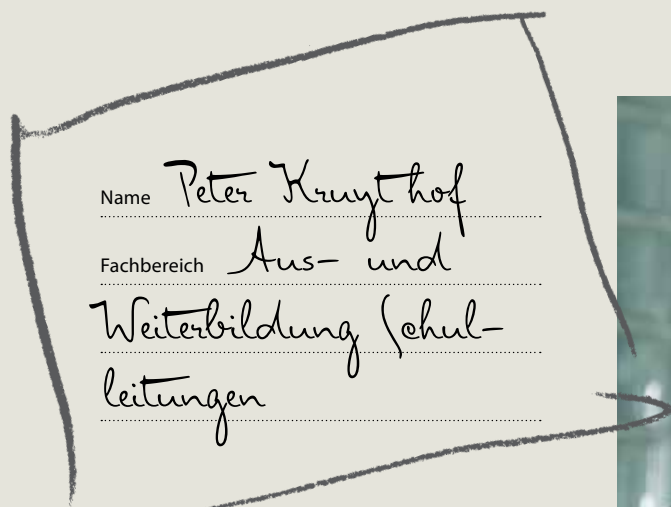 Name Peter Kruythof
Fachbereich Aus- und
Weiterbildung Schul-
leitungen